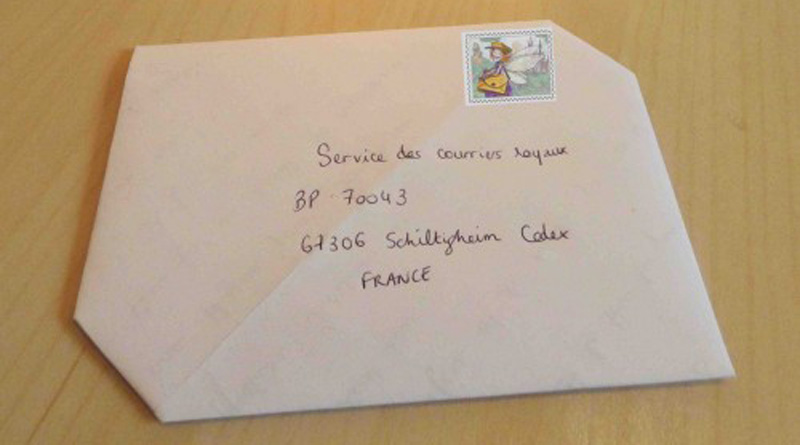 Service des courriers royaux
BP 70043
67306 Schiltigheim Cedex
FRANCE